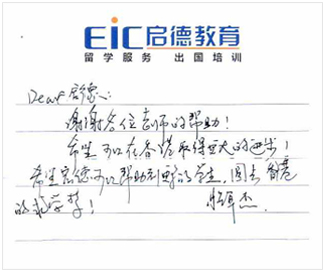 EIC启德教育
留学服务 出国培训
Dear 启德人:
谢谢各位老师的帮助!
希望可以在各港取得更大的进步!
希望启德可以帮助到更多的学生,圆去
的求学梦!